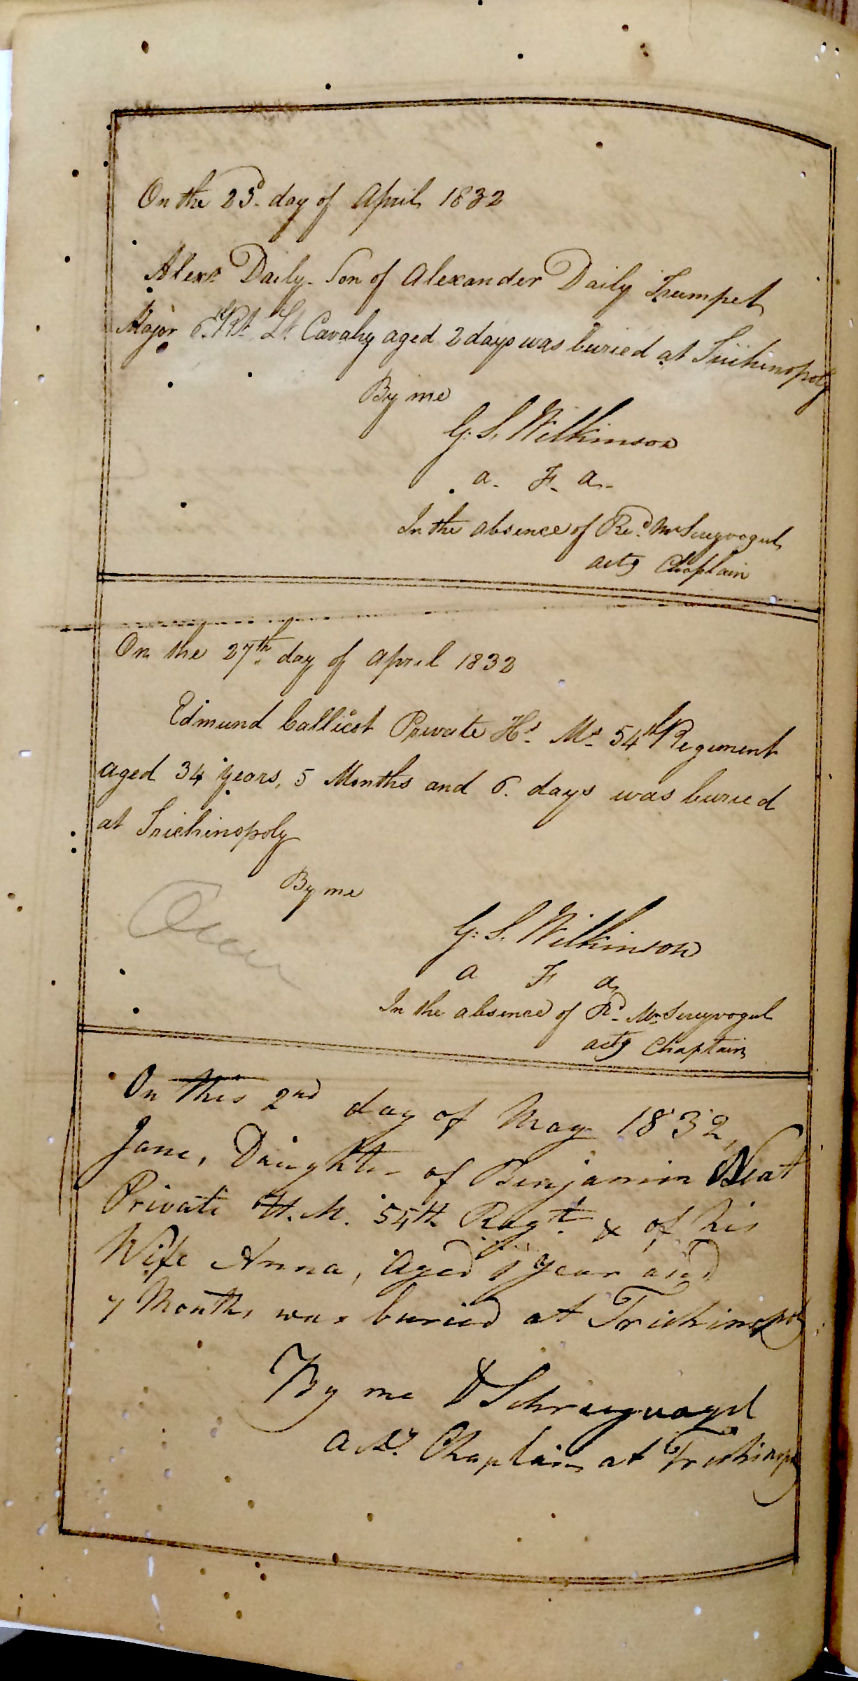 On the 23d. day of April 1832
Alexr. Daily Son of Alexander Daily Trumpet
Major 6. Rt. Lt. Cavalry aged 2 days was buried at Trichinopoly
By me
G. S. Wilkinson
a. F. a.
In the absence of Revd. Mr
actg Chaplain
On the 27th. day of April 1832
Edmund Calliest Private Hs. Ms. 54th Regiment
aged 34 years, 5 Months and 6. days was buried
at Trichinopoly
By me
G. S. Wilkinson
a F a
In the absence of Rd. Mr
actg Chaplain
On this 2nd day of May 1832,
Jane, Daughter of Benjamin Neat
Private H. M. 54th Regt. & of his
Wife Anna, Aged 1 Year and
7 Months was buried at Trichinopoly
By me D Schreyvogel
Chaplain at Trichinop